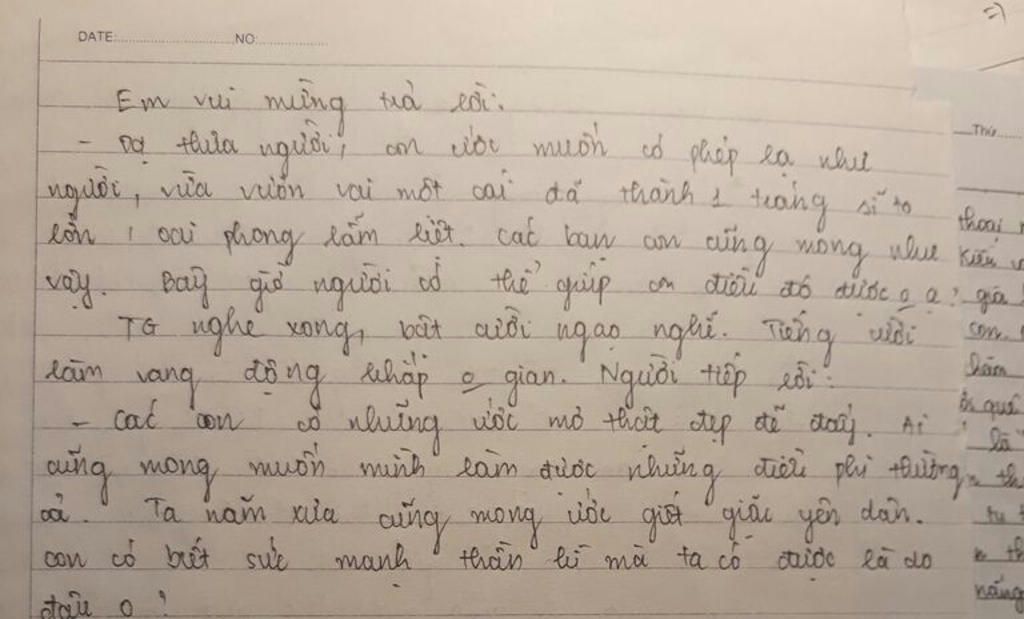 DATE: NO:
Em vui mừng trả lời:
- Dạ thưa người, con ước muốn có phép lạ như
người, vừa vươn vai một cái đã thành 1 tráng sĩ to
lớn, oai phong lẫm liệt. Các bạn con cũng mong như
vậy. Bây giờ người có thể giúp con điều đó được o ạ?
TG nghe xong, bật cười ngạo nghễ. Tiếng cười
làm vang động khắp o gian. Người tiếp lời:
- Các con có những ước mơ thật đẹp đẽ đấy. Ai
cũng mong muốn mình làm được những điều phi thường
cả. Ta năm xưa cũng mong ước giết giặc yên dân.
Con có biết sức mạnh thần kì mà ta có được là do
đâu o?
Thứ
thoại
Kiếu
già
con
hầm
quê
là
th
tu
th
nắng